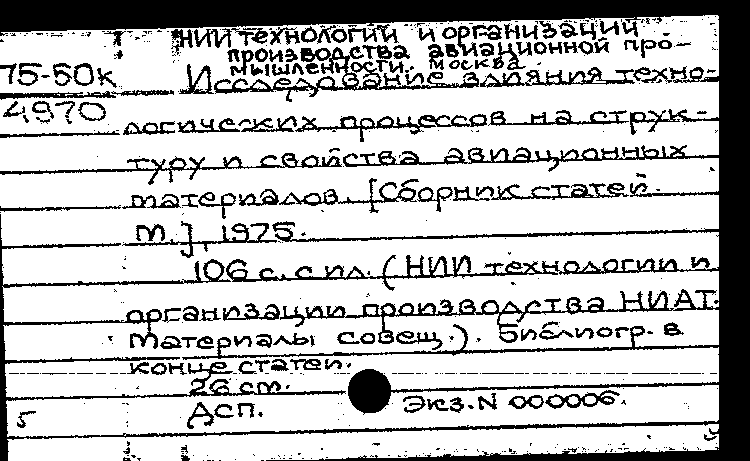 НИИ технологии и организации
производства авиационной про-
мышленности. Москва.
75-50к Исследование влияния техно-
4970 логических процессов на струк-
туру и свойства авиационных
материалов. [Сборник статей.
М.], 1975.
106 с. с ил. (НИИ технологии и
организации производства НИАТ.
Материалы совещ.). Библиогр. в
конце статей.
26 см.
5 Дсп. Экз.N 000006.